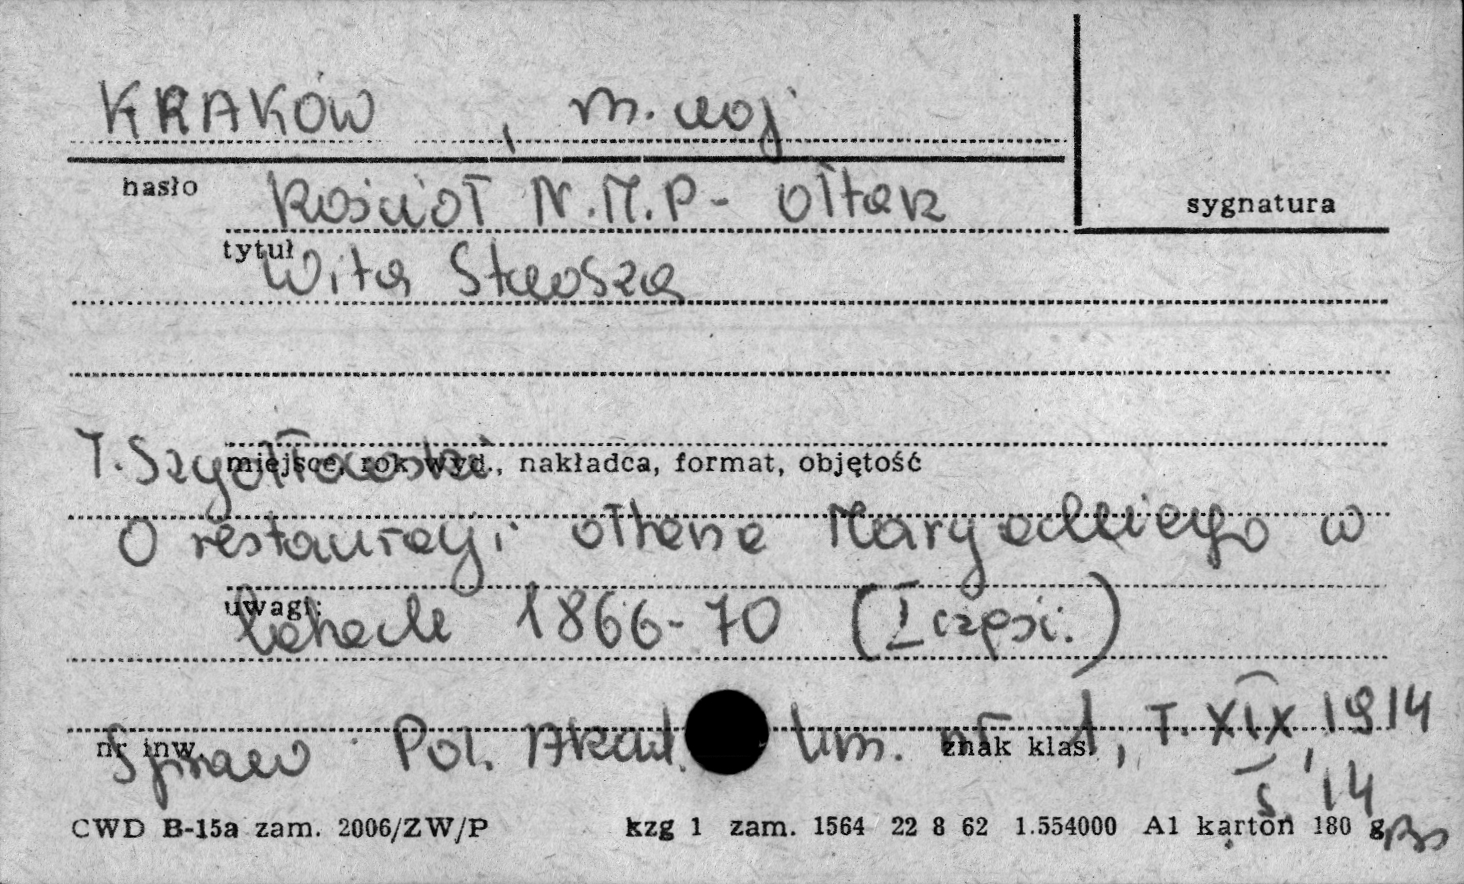 KRAKÓW , m. woj
hasło
Kościół N.M.P- ołtarz
sygnatura
tytuł
Wita Stwosza
T. Szydłowski
miejsce, rok wyd., nakładca, format, objętość
O restauracyi ołtarza Maryackiego w
uwagi:
latach 1866-70 (I część.)
Spraw Pol. Akad. Um. nr 1, T. XIX, 1914
nr inw. znak klas
s. 14
CWD B-15a zam. 2006/ZW/P kzg 1 zam. 1564 22 8 62 1.554000 A1 karton 180 g